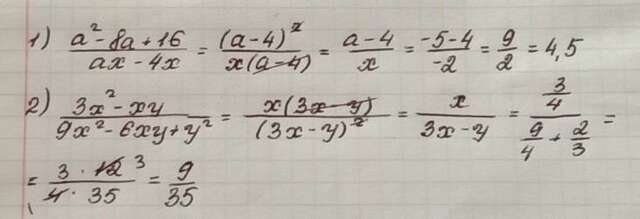 1) (a² - 8a + 16)/(ax - 4x) = (a-4)²/(x(a-4)) = (a-4)/x = (-5-4)/(-2) = 9/2 = 4,5
2) (3x² - xy)/(9x² - 6xy + y²) = x(3x-y)/(3x-y)² = x/(3x-y) = (3/4)/(9/4 + 2/3) =
= (3 · 12 3)/(4 · 35) = 9/35